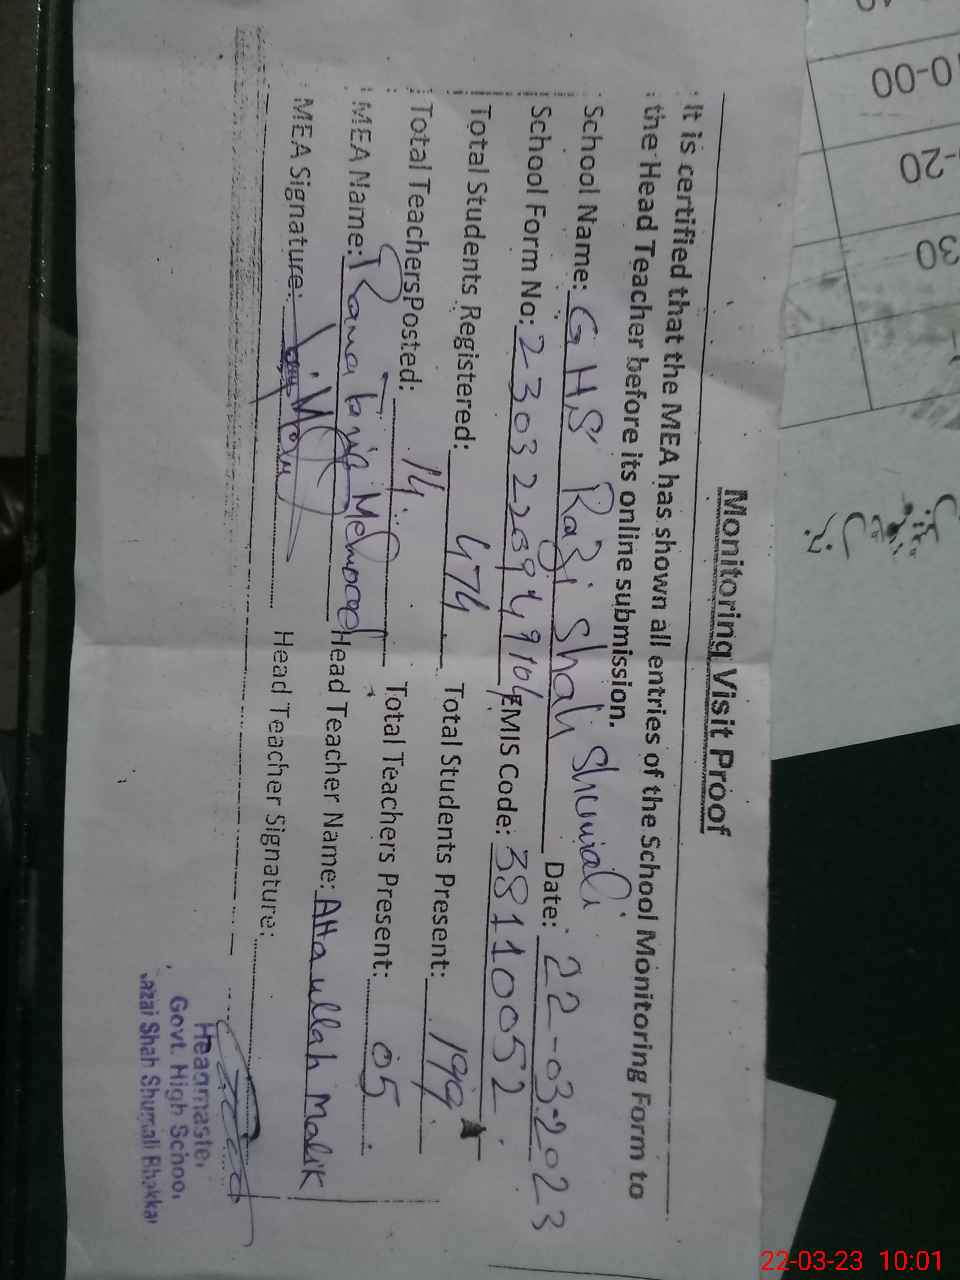 Monitoring Visit Proof
It is certified that the MEA has shown all entries of the School Monitoring Form to
the Head Teacher before its online submission.
School Name: GHS Razi Shah Shumali Date: 22-03-2023
School Form No: EMIS Code: 38110052
Total Students Registered: 474 Total Students Present: 199
Total Teachers Posted: 14 Total Teachers Present: 05
MEA Name: Rana Mehmood Head Teacher Name: Atta ullah Malik
MEA Signature: Head Teacher Signature:
Headmaste,
Govt. High Schoo,
azai Shah Shumali Bhakka
0-00
20
30
22-03-23 10:01